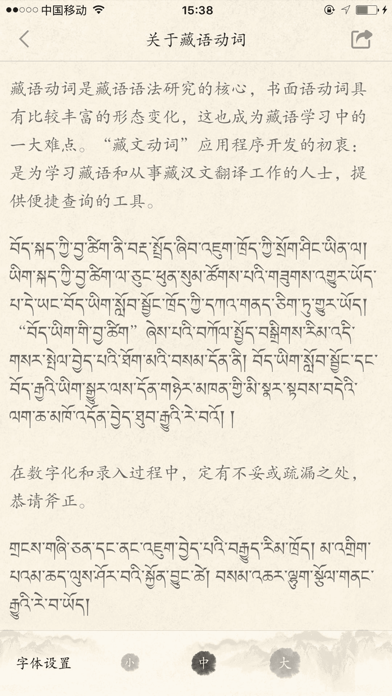 中国移动
15:38
关于藏语动词
藏语动词是藏语语法研究的核心，书面语动词具
有比较丰富的形态变化，这也成为藏语学习中的
一大难点。“藏文动词”应用程序开发的初衷：
是为学习藏语和从事藏汉文翻译工作的人士，提
供便捷查询的工具。
བོད་སྐད་ཀྱི་བྱ་ཚིག་ནི་བརྡ་སྤྲོད་ཞིབ་འཇུག་ཁྲོད་ཀྱི་སྲོག་ཤིང་ཡིན་ལ།
ཡིག་སྐད་ཀྱི་བྱ་ཚིག་ལ་ཅུང་ཕུན་སུམ་ཚོགས་པའི་གཟུགས་འགྱུར་ཡོད་
པ་དེ་ཡང་བོད་ཡིག་སློབ་སྦྱོང་ཁྲོད་ཀྱི་དཀའ་གནད་ཅིག་ཏུ་གྱུར་ཡོད།
“བོད་ཡིག་གི་བྱ་ཚིག”ཞེས་པའི་བཀོལ་སྤྱོད་བསྒྲིགས་རིམ་འདི་
གསར་སྤེལ་བྱེད་པའི་ཐོག་མའི་བསམ་དོན་ནི། བོད་ཡིག་སློབ་སྦྱོང་དང་
བོད་རྒྱའི་ཡིག་སྒྱུར་ལས་དོན་གཉེར་མཁན་གྱི་མི་སྣར་སྟབས་བདེའི་
ལག་ཆ་མཁོ་འདོན་བྱེད་ཐུབ་རྒྱུའི་རེ་བའོ། །
在数字化和录入过程中，定有不妥或疏漏之处，
恭请斧正。
གྲངས་གཞི་ཅན་དང་ནང་འཇུག་བྱེད་པའི་བརྒྱུད་རིམ་ཁྲོད། མ་འགྲིག་
པའམ་ཆད་ལུས་ཤོར་བའི་སྐྱོན་བྱུང་ཚེ། བསམ་འཆར་ལྷུག་སྩོལ་གནང་
རྒྱུའི་རེ་བ་ཡོད།
字体设置 小 中 大